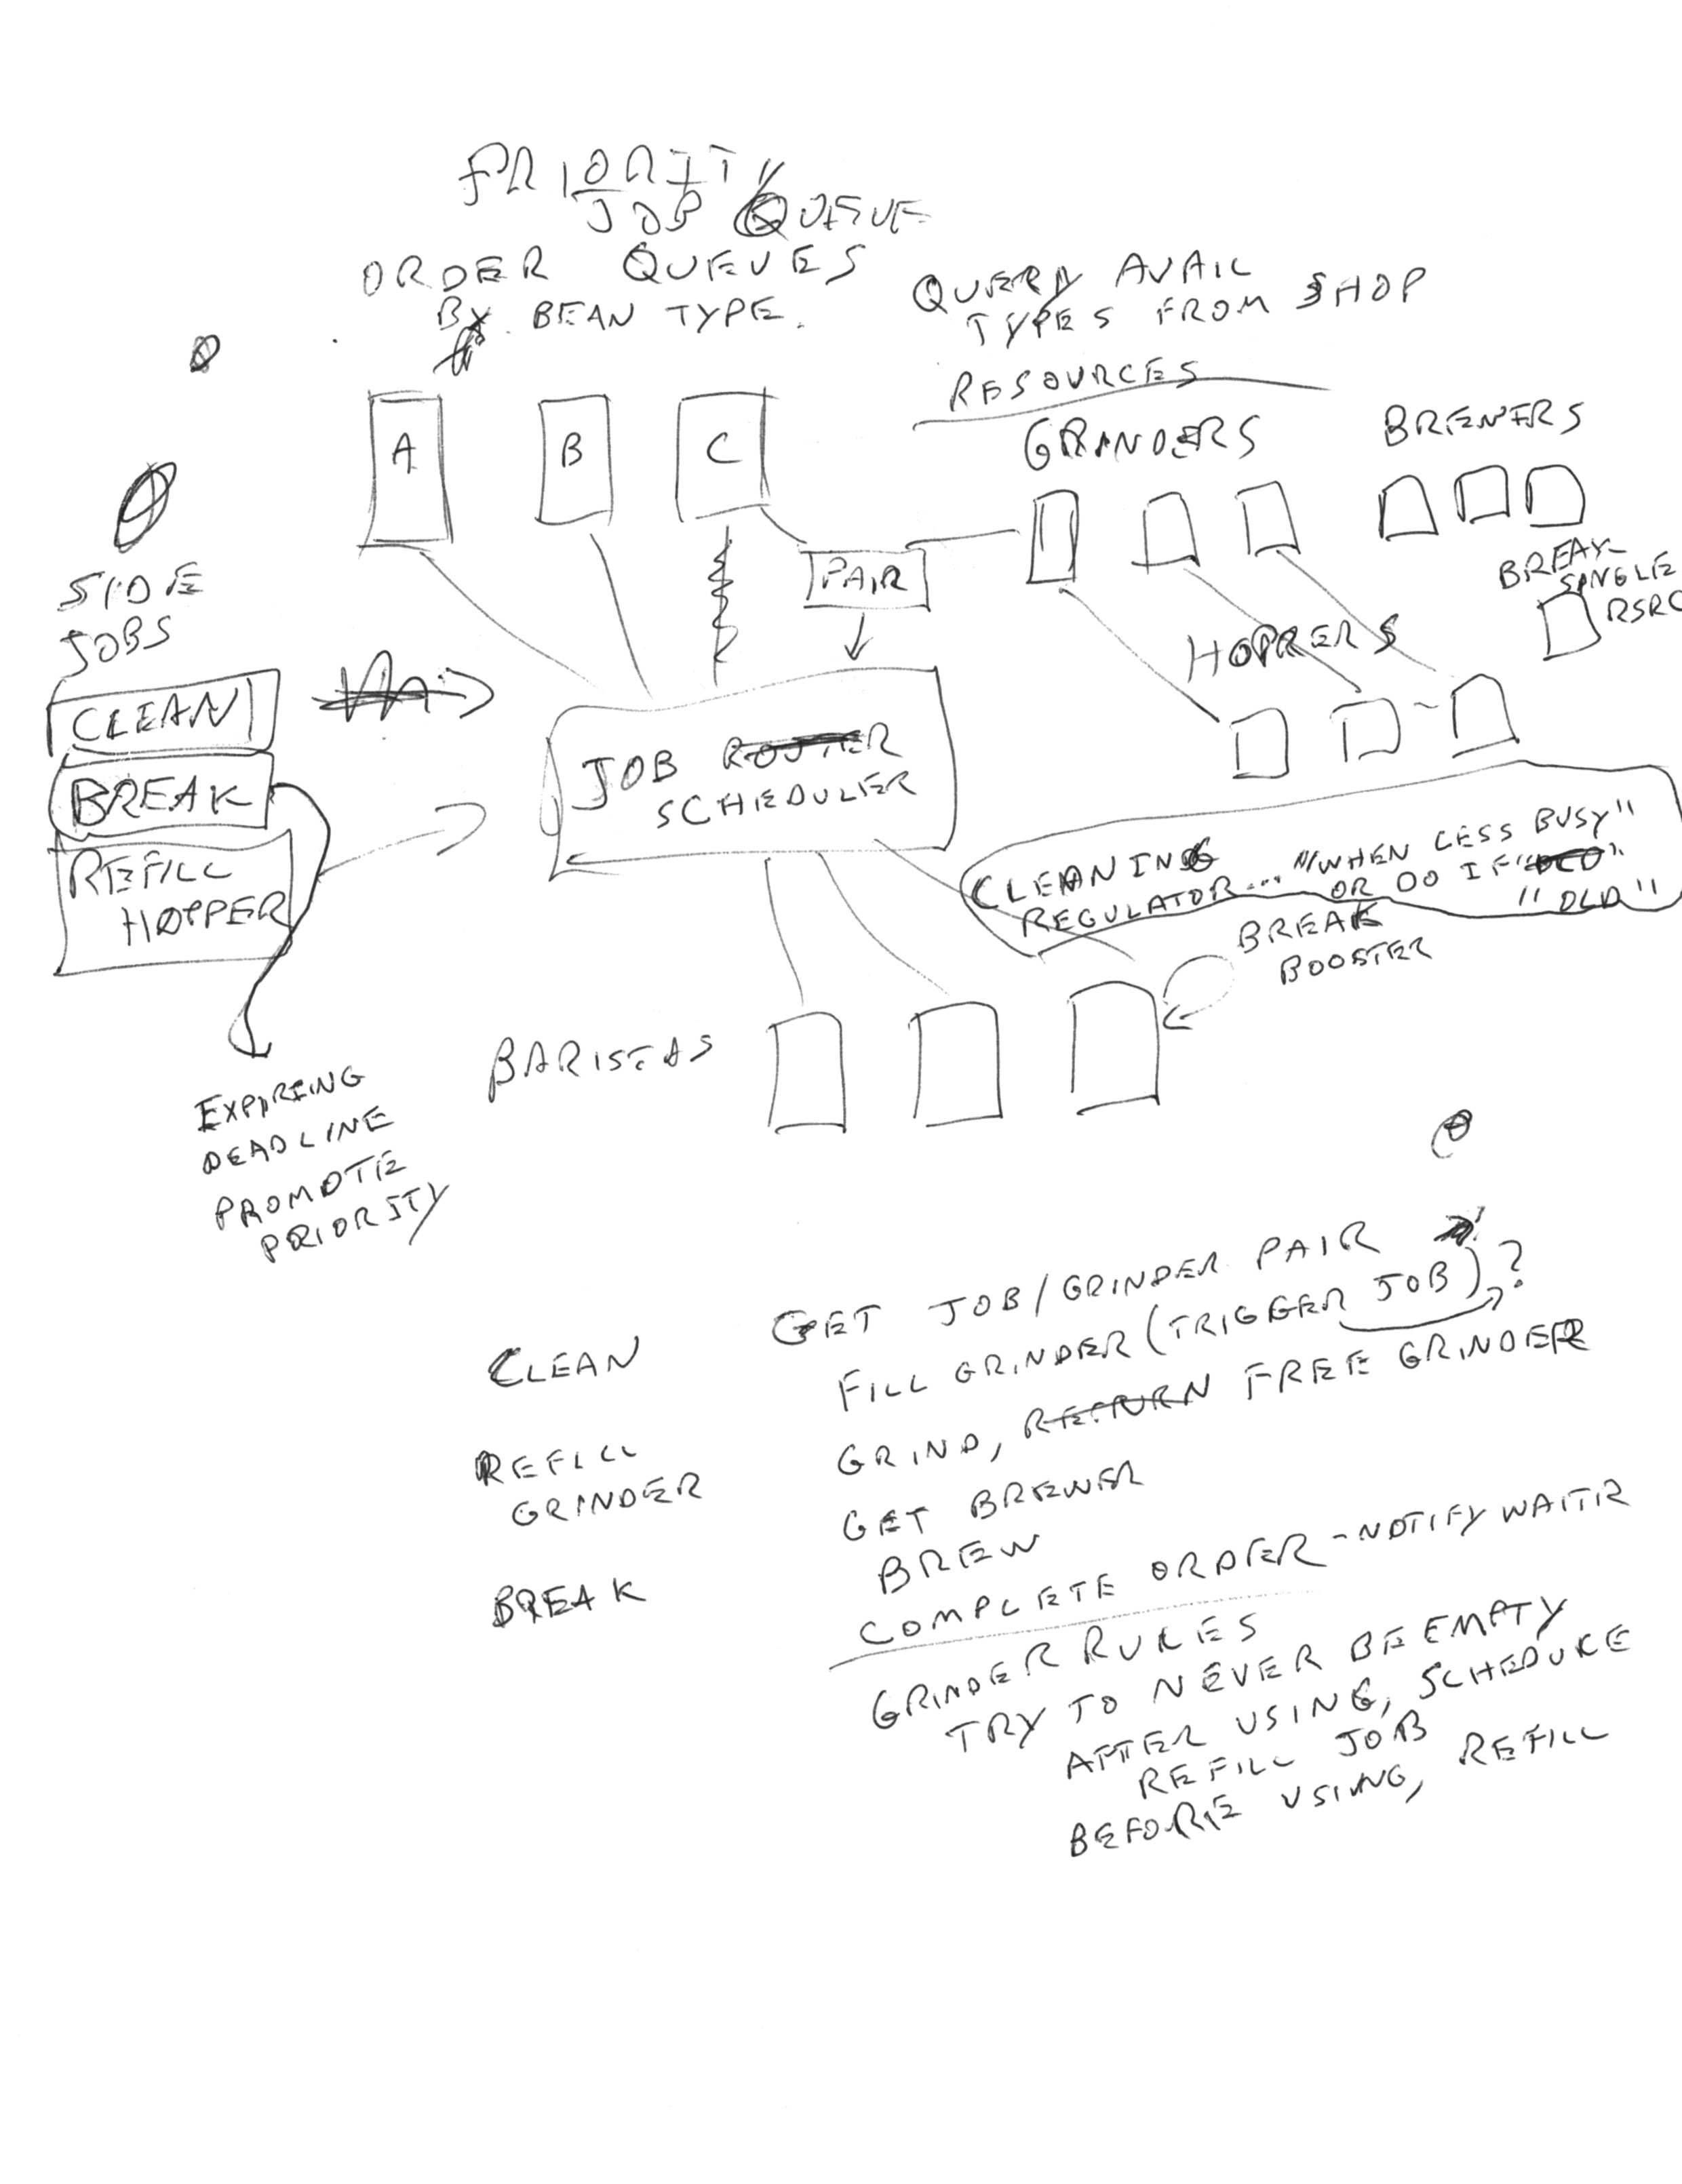 PRIORITY
JOB QUEUE
ORDER QUEUES
BY BEAN TYPE.
QUERY AVAIL
TYPES FROM SHOP
RESOURCES
GRINDERS
BREWERS
A
B
C
PAIR
BREAK
SINGLE
RSRC
HOPPERS
SIDE
JOBS
CLEAN
BREAK
REFILL
HOPPER
JOB ROUTER
SCHEDULER
CLEANING
REGULATOR... "WHEN LESS BUSY"
OR DO IF "OLD"
"OLD"
BREAK
BOOSTER
BARISTAS
EXPIRING
DEADLINE
PROMOTE
PRIORITY
CLEAN
REFILL
GRINDER
BREAK
GET JOB/GRINDER PAIR
FILL GRINDER (TRIGGER JOB)?
GRIND, RETURN FREE GRINDER
GET BREWER
BREW
COMPLETE ORDER - NOTIFY WAITR
GRINDER RULES
TRY TO NEVER BE EMPTY
AFTER USING, SCHEDULE
REFILL JOB
BEFORE USING, REFILL